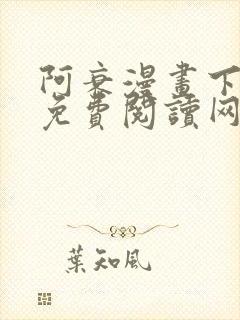 阿衰漫畫下
免費閱讀网
葉知風